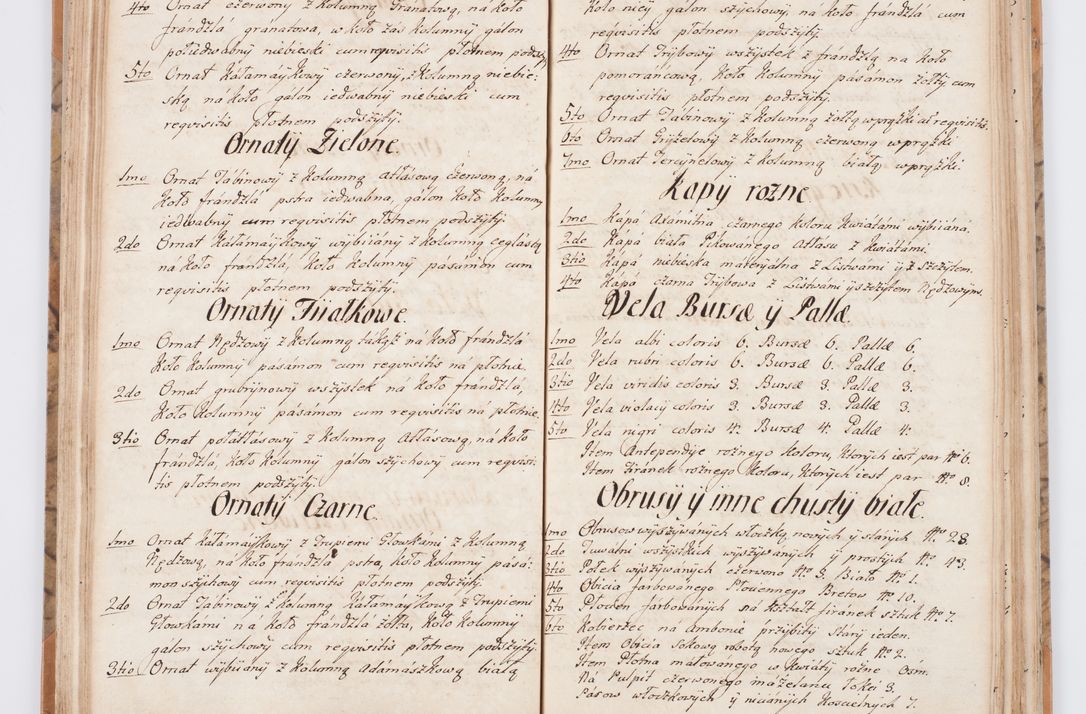 4to Ornat czerwony z Kolumną Granatową, na koło
frándzlá granatowa, w koło zás Kolumny gálon
połiedwabny niebieski cum reqvisitis płotnem podszyty
5to Ornat Káłamáykowy czerwony, z Kolumną niebie:
ską, ná koło gálon iedwabny niebieski cum
reqvisitis płotnem podszyty.
Ornaty Zielone.
1mo Ornat Tábinowy z Kolumną Atłasową czerwoną, ná
koło frándzlá pstra iedwabna, gálon koło Kolumny
iedwabny cum reqvisitis płotnem podszyty
2do Ornat Káłamáykowy wybiiány z Kolumną ceglástą
ná koło frándzlá, koło Kolumny pásámon cum
reqvisitis płotnem podszyty.
Ornaty Fijałkowe.
1mo Ornat Rędzowy z Kolumną tákąż ná koło frándzlá
koło Kolumny pásámon cum reqvisitis ná płotnie.
2do Ornat grubrynowy wszystek ná koło frándzlá,
koło Kolumny pásámon cum reqvisitis ná płotnie.
3tio Ornat połátłásowy z Kolumną Atłásową, ná koło
frándzlá, koło Kolumny gálon szychowy cum reqvisi:
tis płotnem podszyty.
Ornaty Czarne.
1mo Ornat Káłamáykowy z Trupiemi Głowkami z Kolumną
Rędzową, ná koło frándzlá pstra, koło Kolumny pásá:
mon szykowy cum reqvisitis płotnem podszyty.
2do Ornat Tábinowy z Kolumną Káłamáykową z Trupiemi
Głowkami ná koło frándzlá żółta, koło Kolumny
gálon szychowy cum reqvisitis płotnem podszyty.
3tio Ornat wybiiány z Kolumną Adámászkową białą
koło niey gálon szychowy ná koło frándzlá cum
reqvisitis płotnem podszyty.
4to Ornat Trybowy wszystek z frándzlą ná koło
pomoráncową, koło Kolumny pásámon żółty cum
reqvisitis płotnem podszyty.
5to Ornat Tábinowy z Kolumną żółtą w prążki at reqvisitis.
6to Ornat Gryzetowy z Kolumną czerwoną w prążki
7mo Ornat Tercynelowy z Kolumną białą w prążki.
Kapy rozne
1mo Kápá Axámitna czarnego koloru kwiátámi wybiiána.
2do Kápá biała Pikowanego Atłasu z kwiátámi.
3tio Kápá niebieska materyálna z Listwámi y z Szczytem.
4to Kápá czarna Trybowa z Listwámi y szczytem Rędzowym.
Vela Bursæ ÿ Pallæ.
1mo Vela albi coloris 6. Bursæ 6. Pallæ 6.
2do Vela rubri coloris 6. Bursæ 6. Pallæ 6.
3tio Vela viridis coloris 3. Bursæ 3. Pallæ 3.
4to Vela violacy coloris 3. Bursæ 3. Pallæ 3.
5to Vela nigri coloris 4. Bursæ 4. Pallæ 4.
Item Antependije rożnego koloru, ktorych iest par No 6.
Item Firánek rożnego koloru, ktorych iest par No 8.
Obrusy ÿ inne chusty białe.
1mo Obrusow wyszywanych włoczką, nowych y stárych No 28
2do Tuwalni wszystkich wyszywanych y prostych No 43.
3tio Połek wyszywanych czerwono No 3. Biało No 1.
4to Obicia farbowánego Płociennego Bretow No 10.
5to Płocien farbowanych ná kształt firánek sztuk No 7.
6to Kobierzec ná Ambonie przybity stáry ieden.
Item Obicia sokową robotą nowego sztuk No 2.
Item Płotna malowanego w kwiáty rożne Osm.
Ná Pulpit czerwonego máżelanu łokci 3.
Pásow włoczkowych y niciánych Koscielnych 7.